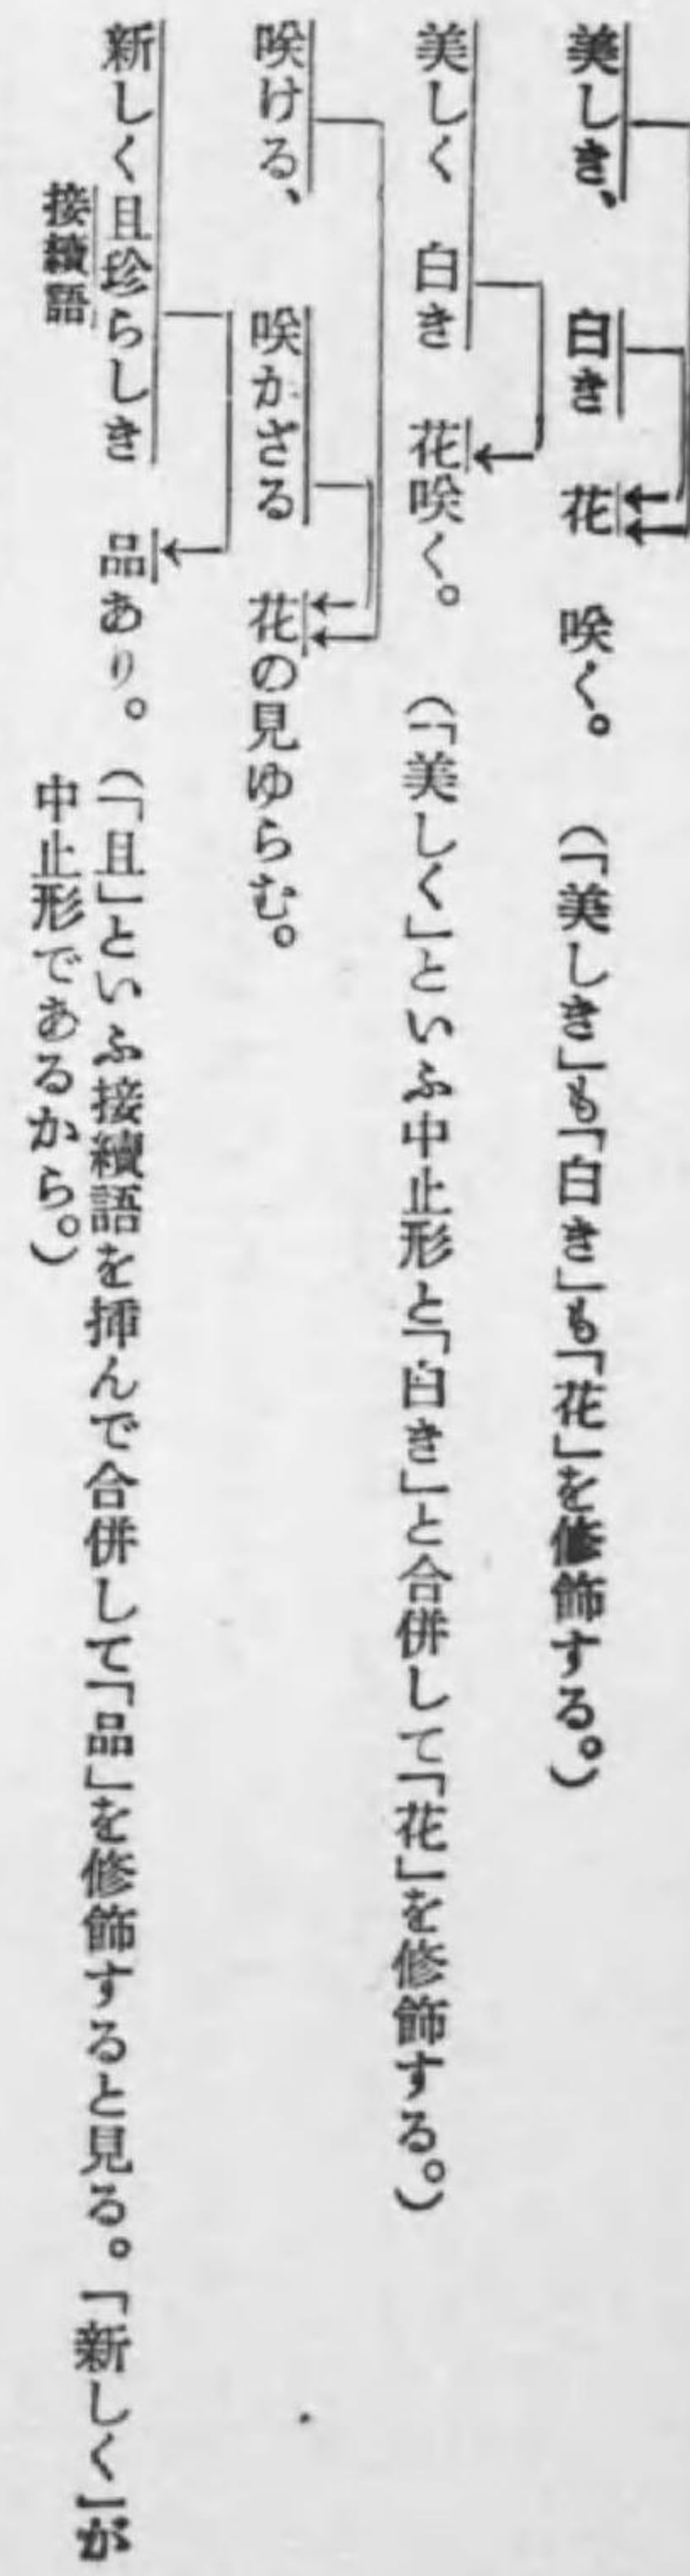 美しき、白き 花 咲く。(「美しき」も「白き」も「花」を修飾する。)
美しく 白き 花咲く。(「美しく」といふ中止形と「白き」と合併して「花」を修飾する。)
咲ける、咲かざる 花の見ゆらむ。
新しく且珍らしき 品あり。(「且」といふ接續語を挿んで合併して「品」を修飾すると見る。「新しく」が
接續語
中止形であるから。)